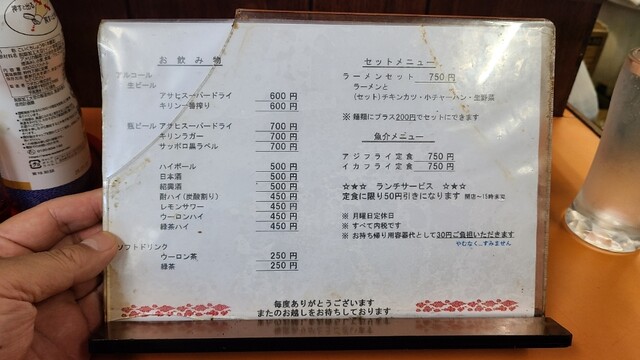 お飲み物
アルコール
生ビール
アサヒスーパードライ 600 円
キリン一番搾り 600 円
瓶ビール アサヒスーパードライ 700 円
キリンラガー 700 円
サッポロ黒ラベル 700 円
ハイボール 500 円
日本酒 500 円
紹興酒 500 円
酎ハイ(炭酸割り) 450 円
レモンサワー 450 円
ウーロンハイ 450 円
緑茶ハイ 450 円
ソフトドリンク
ウーロン茶 250 円
緑茶 250 円
セットメニュー
ラーメンセット 750 円
ラーメンと
(セット)チキンカツ・小チャーハン・生野菜
※ 麺類にプラス200円でセットにできます
魚介メニュー
アジフライ定食 750 円
イカフライ定食 750 円
☆★☆ ランチサービス ☆★☆
定食に限り50円引きになります 開店~15時まで
※ 月曜日定休日
※ すべて内税です
※ お持ち帰り用容器代として30円ご負担いただきます
やむなく…すみません
毎度ありがとうございます
またのお越しをお待ちしております